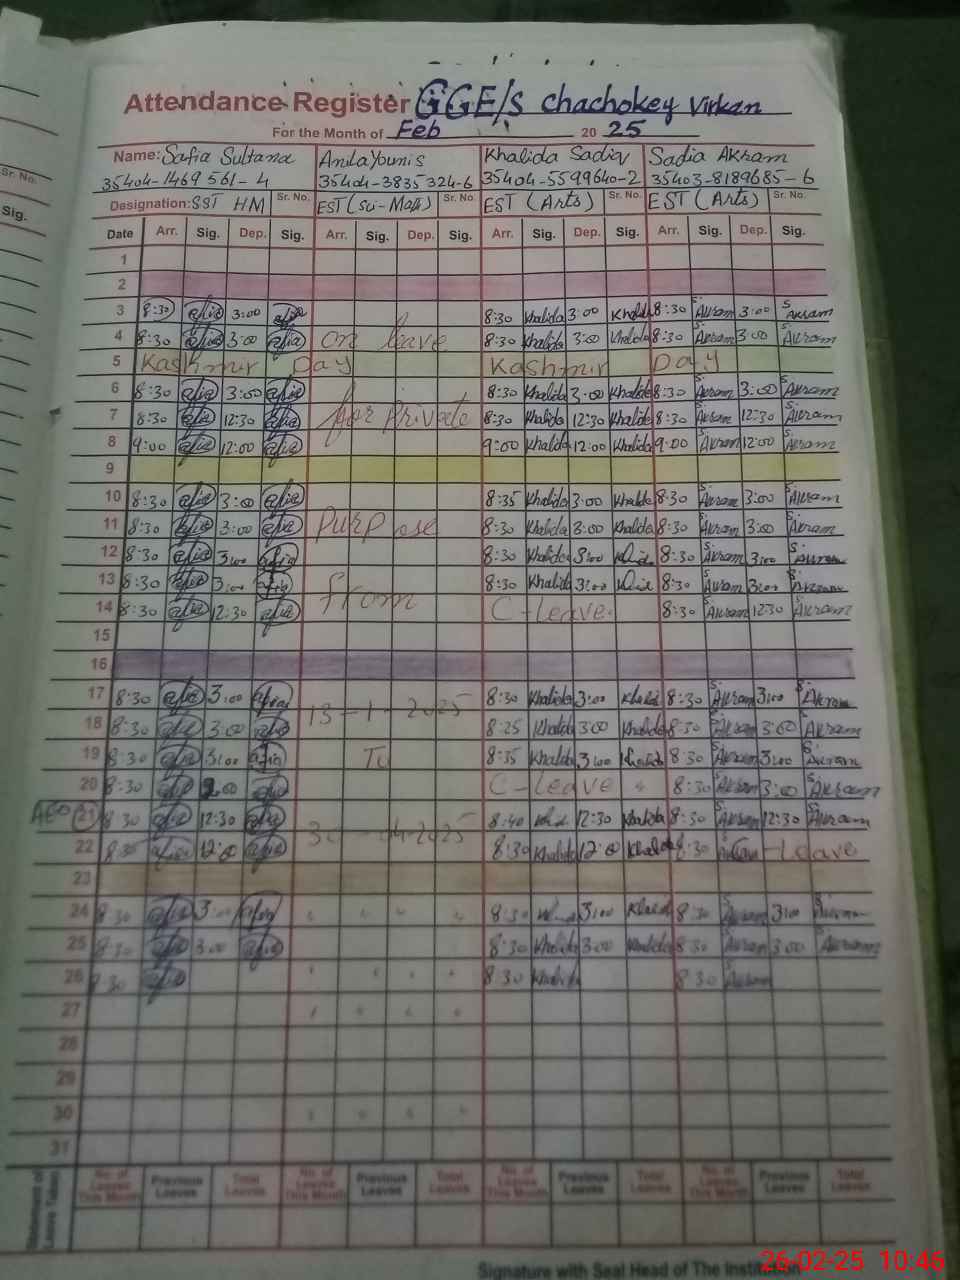 Attendance Register GGE/S chachokey Virkan
For the Month of Feb 20 25
Name: Safia Sultana Anila Younis Khalida Sadia Sadia Akram
35404-1469561-4 35404-3835324-6 35404-5599640-2 35403-8189685-6
Designation: SST HM Sr. No. EST (Sci-Math) Sr. No. EST (Arts) Sr. No. EST (Arts) Sr. No.
Date Arr. Sig. Dep. Sig. Arr. Sig. Dep. Sig. Arr. Sig. Dep. Sig. Arr. Sig. Dep. Sig.
1
2
3 8:30 afia 3:00 afia 8:30 Khalida 3:00 Khalida 8:30 S. Akram 3:00 S. Akram
4 8:30 afia 3:00 afia on leave 8:30 Khalida 3:00 Khalida 8:30 Akram 3:00 S. Akram
5 Kashmir Day Kashmir Day
6 8:30 afia 3:00 afia 8:30 Khalida 3:00 Khalida 8:30 S. Akram 3:00 S. Akram
7 8:30 afia 12:30 afia for Private 8:30 Khalida 12:30 Khalida 8:30 S. Akram 12:30 S. Akram
8 9:00 afia 12:00 afia 9:00 Khalida 12:00 Khalida 9:00 S. Akram 12:00 S. Akram
9
10 8:30 afia 3:00 afia 8:35 Khalida 3:00 Khalida 8:30 S. Akram 3:00 S. Akram
11 8:30 afia 3:00 afia Purpose 8:30 Khalida 3:00 Khalida 8:30 S. Akram 3:00 S. Akram
12 8:30 afia 3:00 afia 8:30 Khalida 3:00 8:30 S. Akram 3:00 S. Akram
13 8:30 afia 3:00 afia 8:30 Khalida 3:00 8:30 S. Akram 3:00 S. Akram
14 8:30 afia 12:30 afia from C-leave. 8:30 S. Akram 12:30 S. Akram
15
16
17 8:30 afia 3:00 afia 8:30 Khalida 3:00 Khalid 8:30 S. Akram 3:00 S. Akram
18 8:30 afia 3:00 afia 13-1-2025 8:25 Khalida 3:00 Khalida 8:30 S. Akram 3:00 S. Akram
19 8:30 afia 3:00 afia To 8:35 Khalida 3:00 Khalida 8:30 S. Akram 3:00 S. Akram
20 8:30 afia 3:00 afia C-leave 8:30 S. Akram 3:00 S. Akram
AEO 21 8:30 afia 12:30 afia 8:40 12:30 Khalida 8:30 S. Akram 12:30 S. Akram
22 8:30 afia 12:00 afia 30-04-2025 8:30 Khalida 12:00 Khalida 8:30 C-Leave
23
24 8:30 afia 3:00 afia 8:30 3:00 Khalid 8:30 S. Akram 3:00 S. Akram
25 8:30 afia 3:00 afia 8:30 Khalida 3:00 Khalida 8:30 S. Akram 3:00 S. Akram
26 8:30 afia 8:30 Khalida 8:30 S. Akram
27
28
29
30
31
Statement of Leave Taken No. of Leaves This Month Previous Leaves Total Leaves No. of Leaves This Month Previous Leaves Total Leaves No. of Leaves This Month Previous Leaves Total Leaves No. of Leaves This Month Previous Leaves Total Leaves
Signature with Seal Head of The Institution
26-02-25 10:46
Sr. No.
Sig.